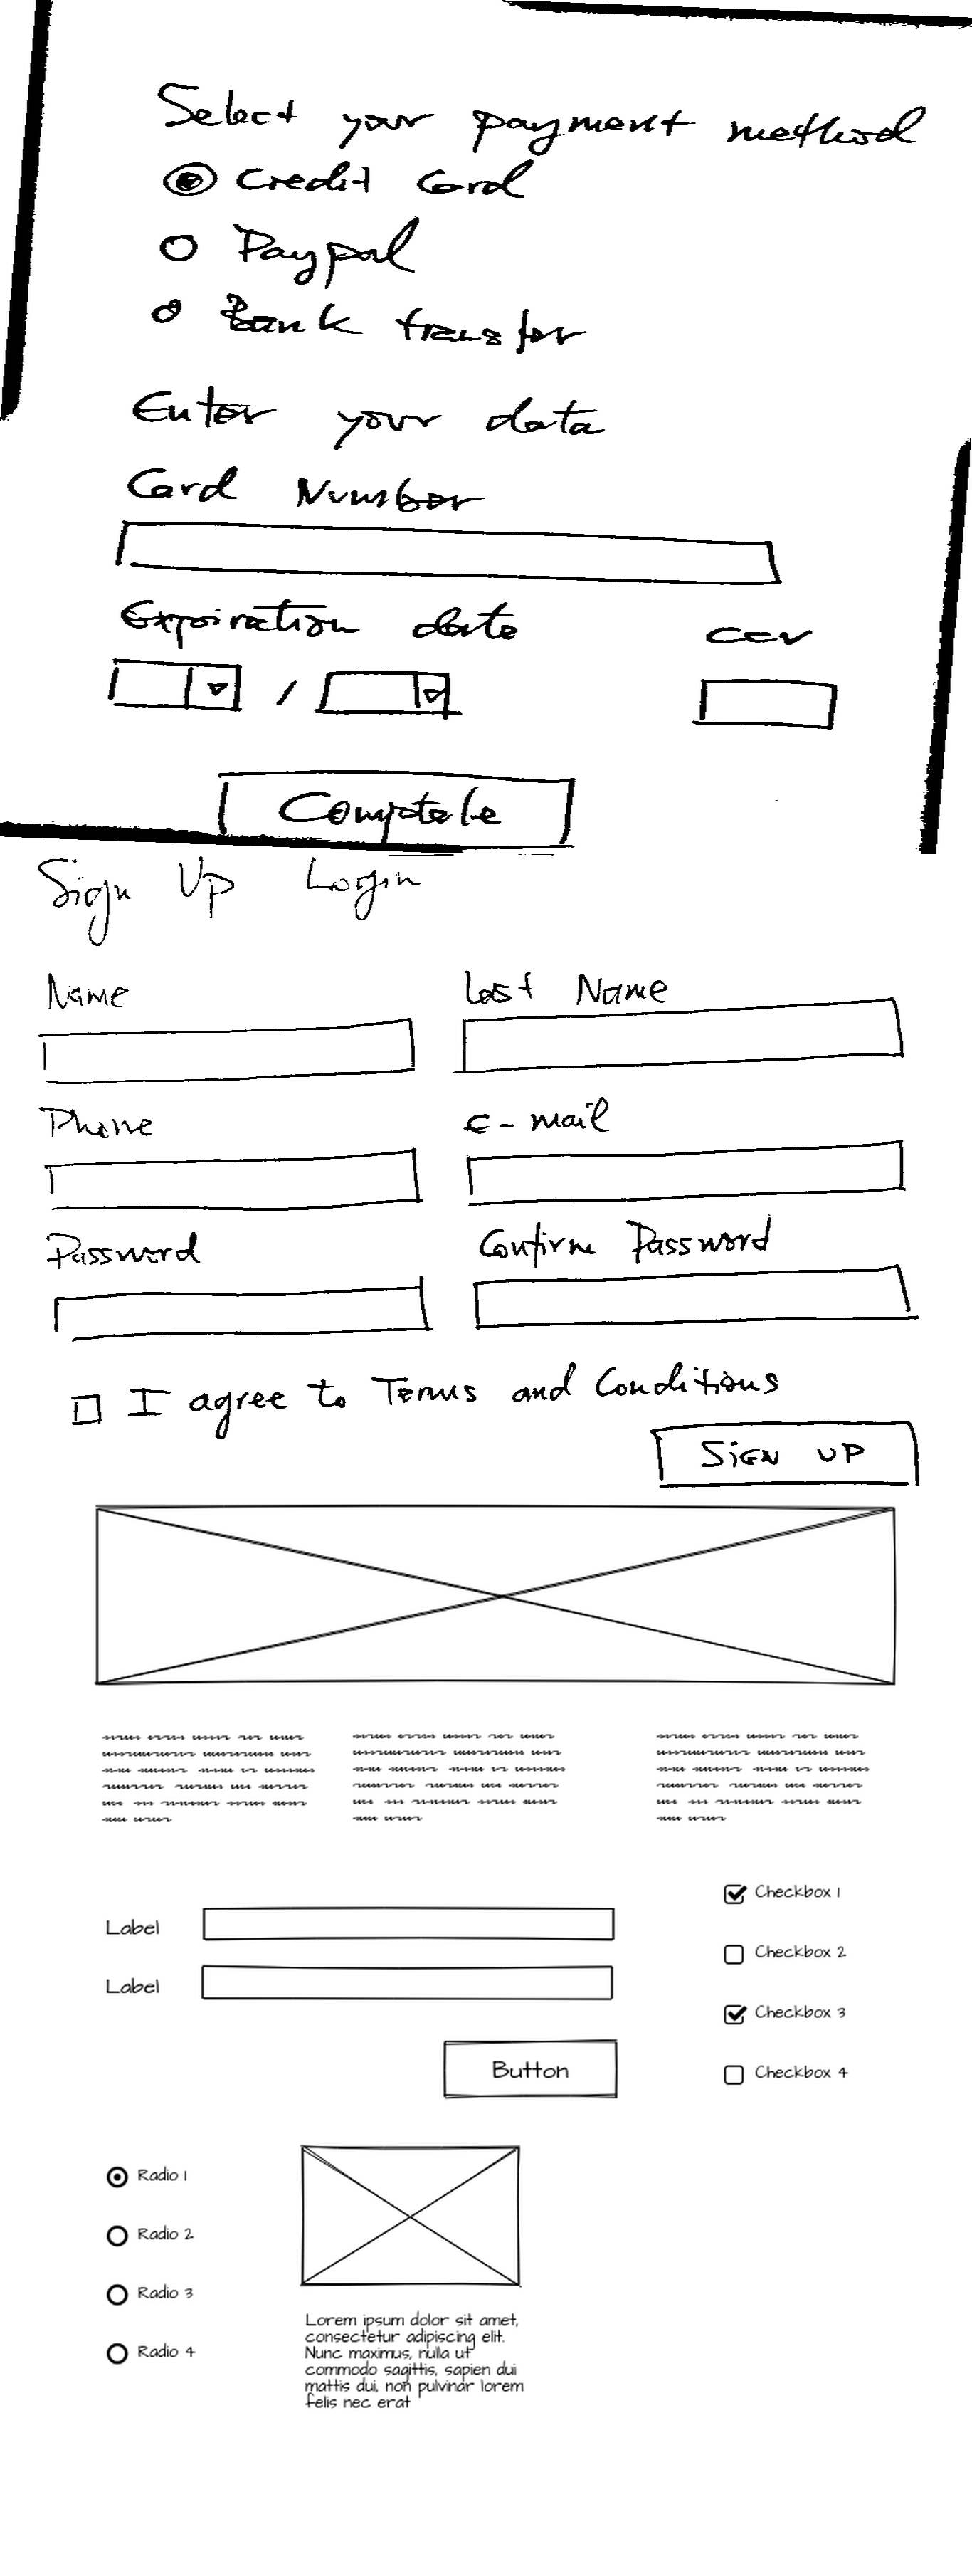 Select your payment method
Credit Card
Paypal
Bank transfer
Enter your data
Card Number
Expiration date CCV
/
Complete
Sign Up Login
Name Last Name
Phone e-mail
Password Confirm Password
I agree to Terms and Conditions
SIGN UP
Checkbox 1
Label
Checkbox 2
Label
Checkbox 3
Button
Checkbox 4
Radio 1
Radio 2
Radio 3
Radio 4
Lorem ipsum dolor sit amet,
consectetur adipiscing elit.
Nunc maximus, nulla ut
commodo sagittis, sapien dui
mattis dui, non pulvinar lorem
felis nec erat